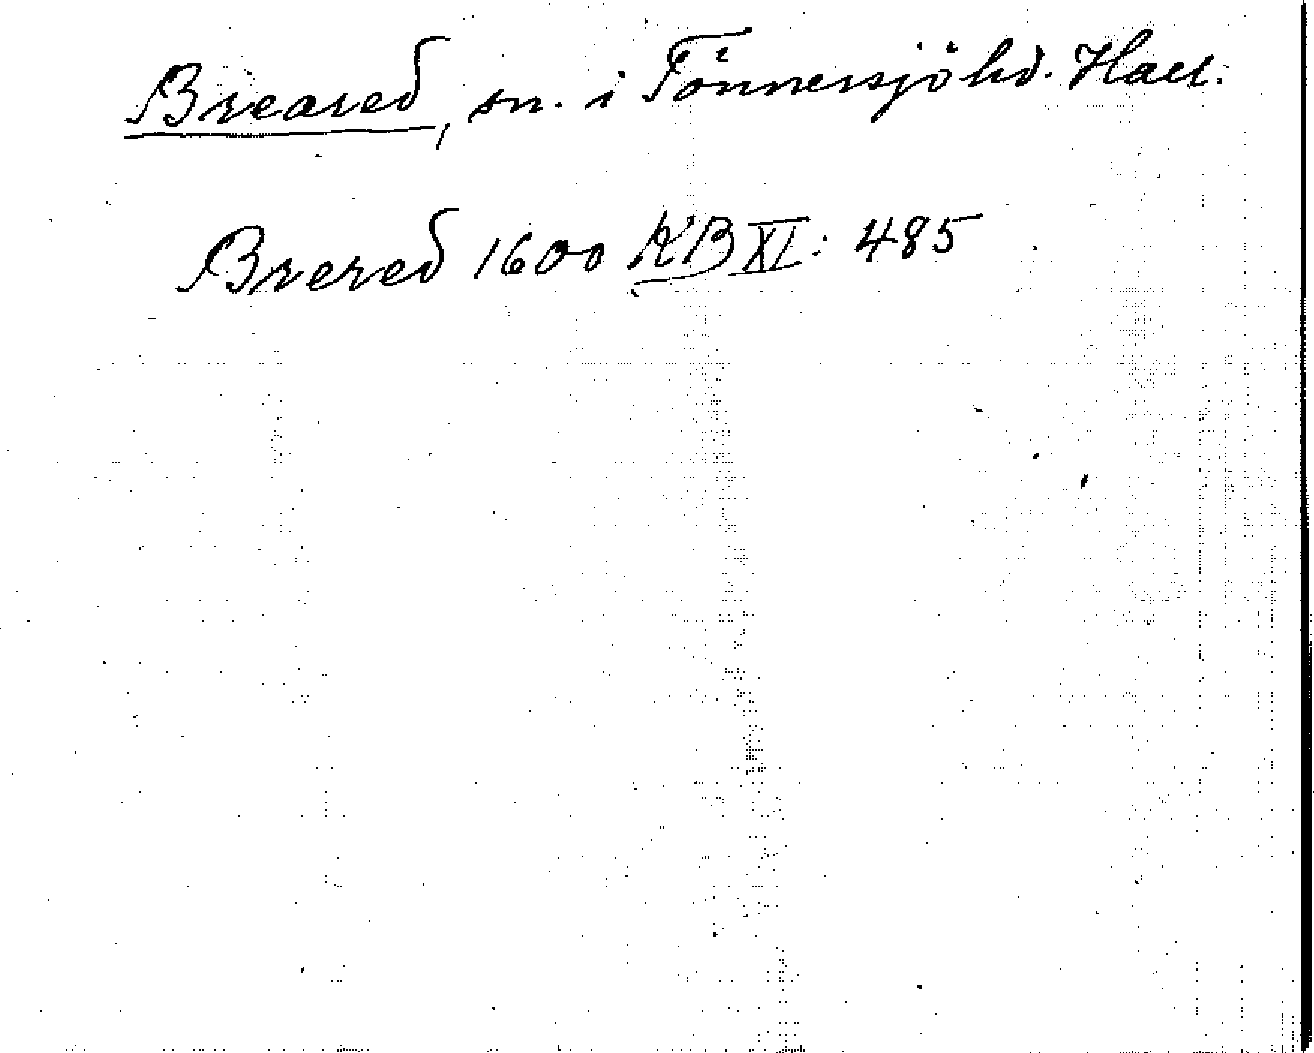 Breared, sn. i Tönnersjö hd. Hall.
Brered 1600 KB XI: 485